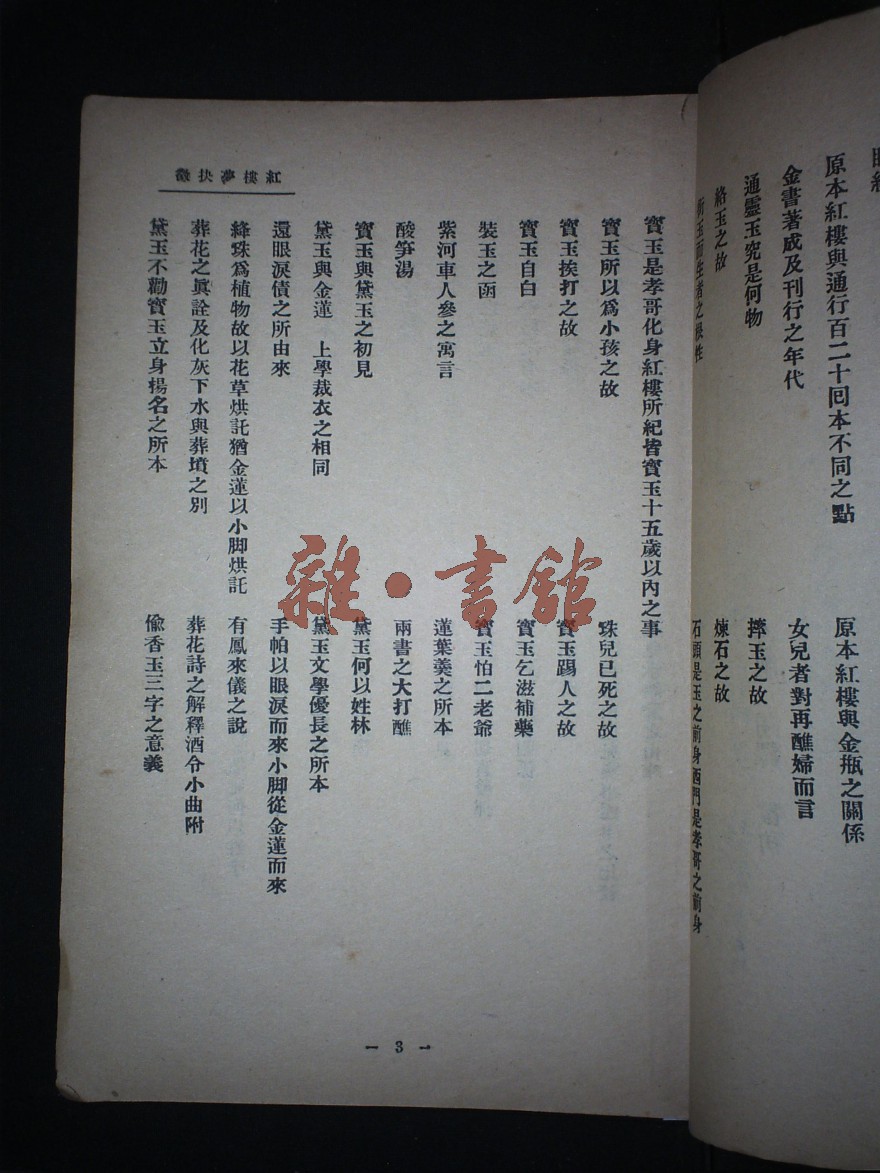 原本紅樓與通行百二十回本不同之點
原本紅樓與金瓶之關係
金書著成及刊行之年代
女兒者對再醮婦而言
通靈玉究是何物
摔玉之故
絡玉之故
煉石之故
銜玉而生者之根性
石頭是玉之前身西門是孝哥之前身
紅樓夢抉微
寶玉是孝哥化身紅樓所紀皆寶玉十五歲以內之事
寶玉所以爲小孩之故
珠兒已死之故
寶玉挨打之故
寶玉踢人之故
寶玉自白
寶玉乞滋補藥
裝玉之函
寶玉怕二老爺
紫河車人參之寓言
蓮葉羹之所本
酸笋湯
兩書之大打醮
寶玉與黛玉之初見
黛玉何以姓林
黛玉與金蓮 上學裁衣之相同
黛玉文學優長之所本
還眼淚債之所由來
手帕以眼淚而來小脚從金蓮而來
絳珠爲植物故以花草烘託猶金蓮以小脚烘託
有鳳來儀之說
葬花之眞詮及化灰下水與葬墳之別
葬花詩之解釋酒令小曲附
黛玉不勸寶玉立身揚名之所本
偸香玉三字之意義
3
雜·書館